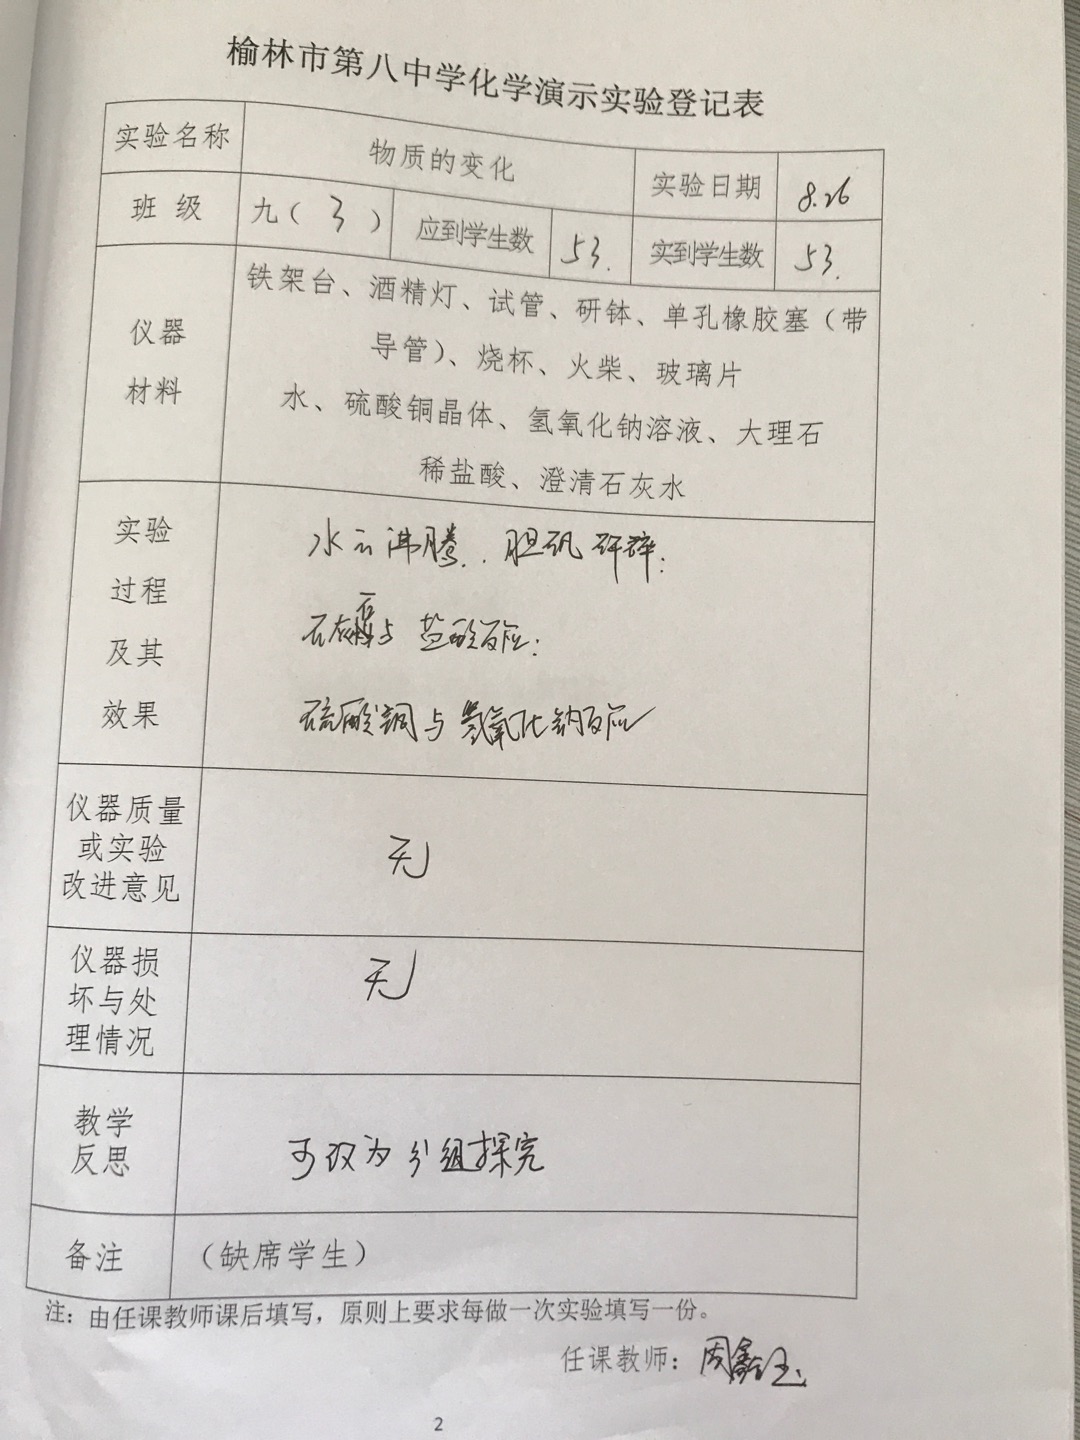 榆林市第八中学化学演示实验登记表
实验名称 物质的变化 实验日期 8.26
班 级 九（3） 应到学生数 53. 实到学生数 53.
仪器
材料
铁架台、酒精灯、试管、研钵、单孔橡胶塞（带
导管）、烧杯、火柴、玻璃片
水、硫酸铜晶体、氢氧化钠溶液、大理石
稀盐酸、澄清石灰水
实验
过程
及其
效果
水 沸腾.. 胆矾研碎;
石灰石与盐酸反应;
硫酸铜与氢氧化钠反应
仪器质量
或实验
改进意见
无
仪器损
坏与处
理情况
无
教学
反思
可改为分组探究
备注 （缺席学生）
注：由任课教师课后填写，原则上要求每做一次实验填写一份。
任课教师：周鑫玉
2